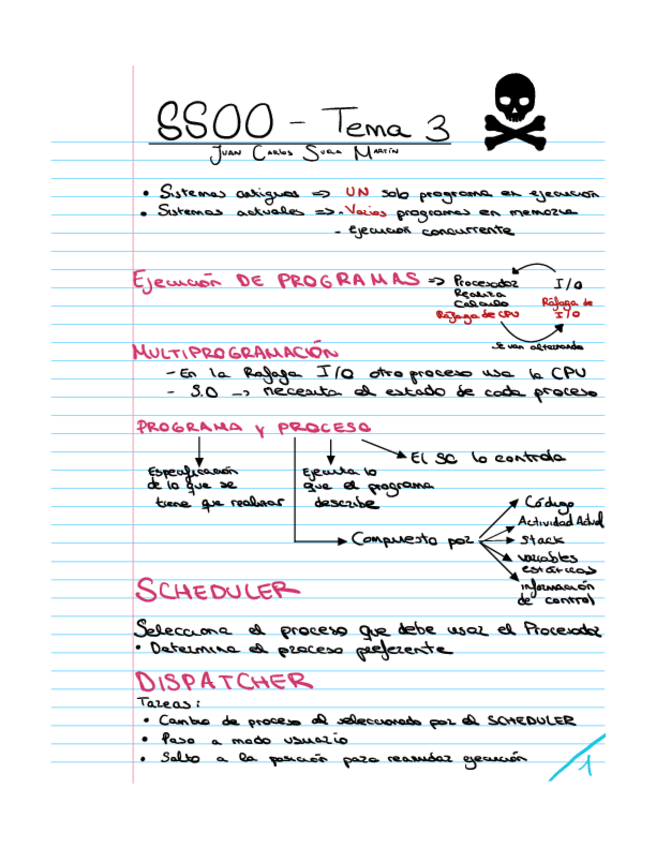 SSOO - Tema 3
Juan Carlos Suela Martín
• Sistemas antiguos => UN solo programa en ejecución
• Sistemas actuales => - Varios programas en memoria
- ejecución concurrente
Ejecución DE PROGRAMAS => Procesador I/O
Realiza
Calculo Ráfaga de
Ráfaga de CPU I/O
Se van alternando
MULTIPROGRAMACIÓN
- En la Rafaga I/O otro proceso usa la CPU
- S.O -> necesita el estado de cada proceso
PROGRAMA y PROCESO
El SO lo controla
Especificación Ejecuta lo
de lo que se que el programa
tiene que realizar describe
Código
Actividad Actual
Compuesto por stack
variables
estáticas
información
de control
SCHEDULER
Selecciona el proceso que debe usar el Procesador
• Determina el proceso preferente
DISPATCHER
Tareas:
• Cambio de proceso al seleccionado por el SCHEDULER
• Paso a modo usuario
• Salto a la posición para reanudar ejecución
1